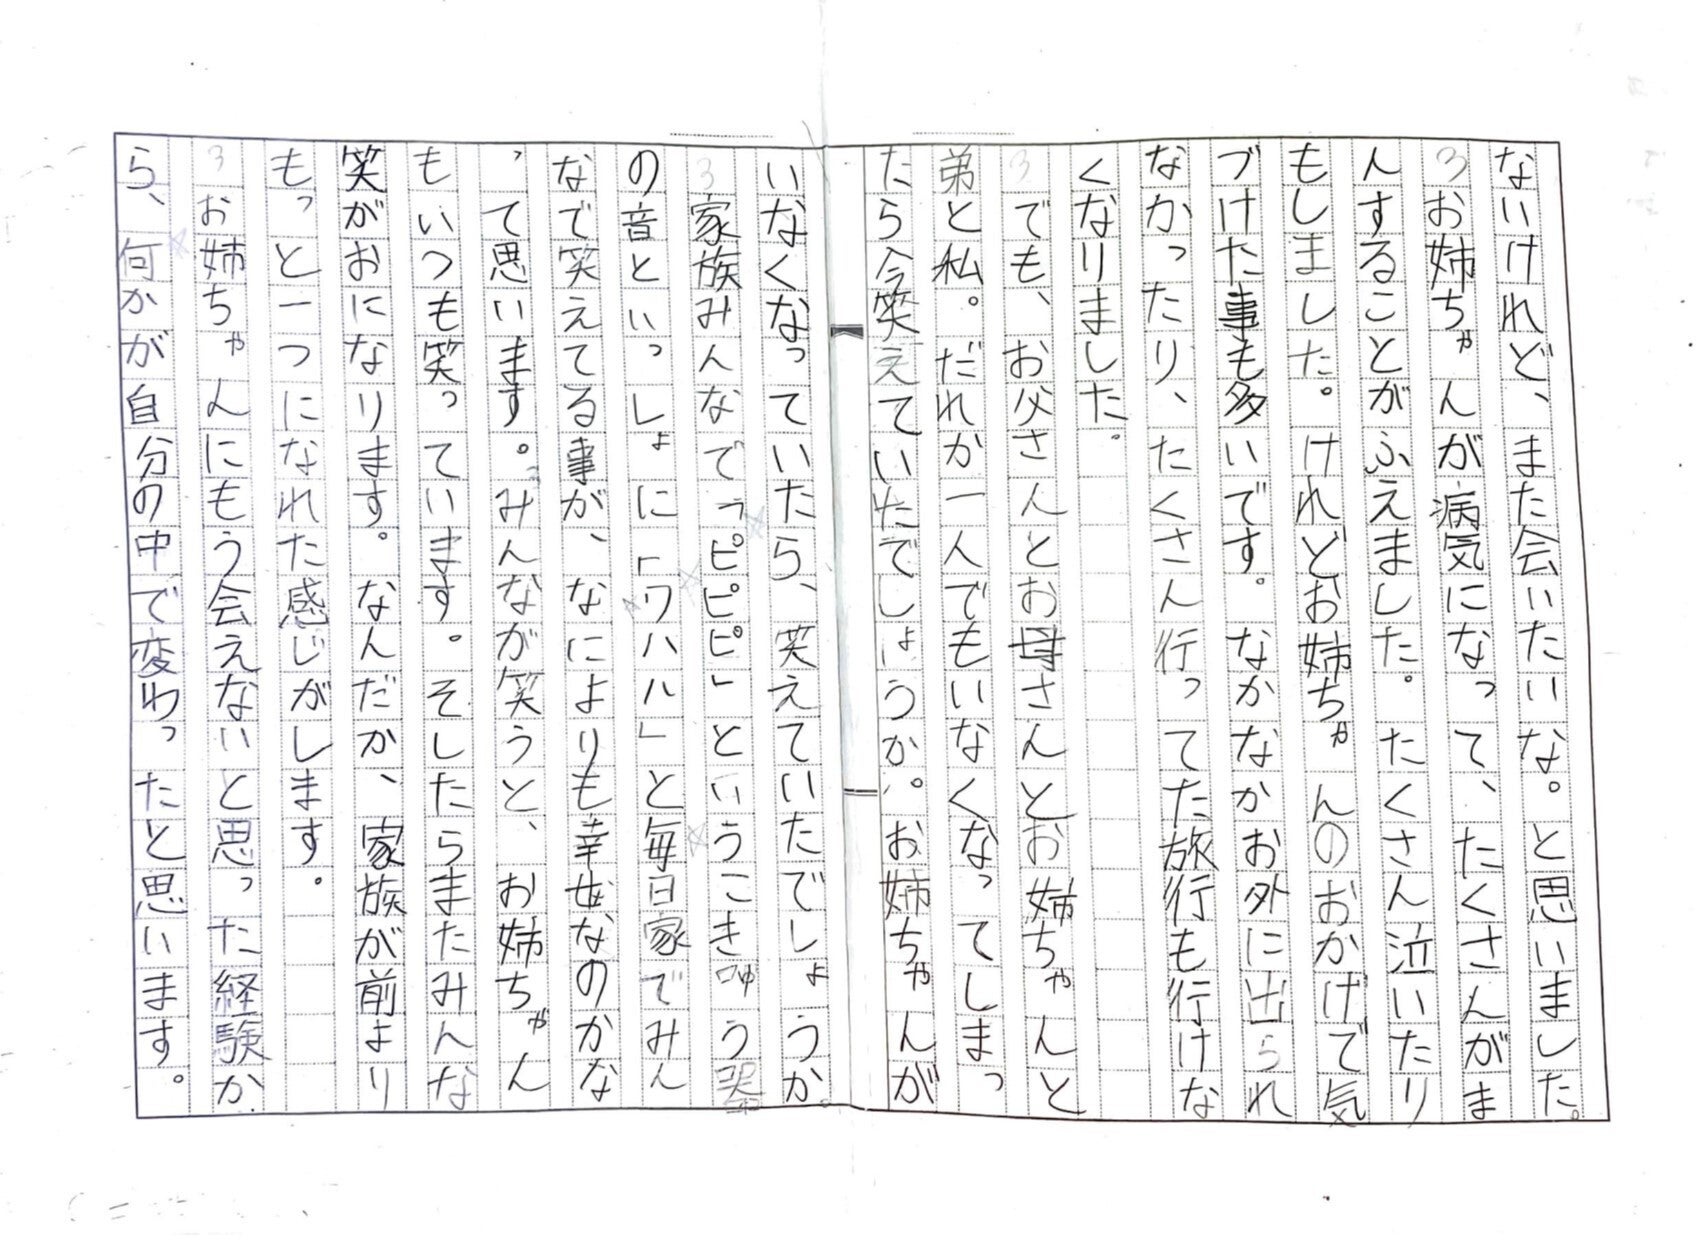 ないけれど、また会いたいな。と思いました。
お姉ちゃんが病気になって、たくさんがま
んすることがふえました。たくさん泣いたり
もしました。けれどお姉ちゃんのおかげで気
づけた事も多いです。なかなかお外に出られ
なかったり、たくさん行ってた旅行も行けな
くなりました。
でも、お父さんとお母さんとお姉ちゃんと
弟と私。だれか一人でもいなくなってしまっ
たら今笑えていたでしょうか。お姉ちゃんが
いなくなっていたら、笑えていたでしょうか。
家族みんなで「ピピピ」というこきゅう器
の音といっしょに「ワハハ」と毎日家でみん
なで笑えてる事が、なによりも幸せなのかな
って思います。みんなが笑うと、お姉ちゃん
もいつも笑っています。そしたらまたみんな
笑がおになります。なんだか、家族が前より
もっと一つになれた感じがします。
お姉ちゃんにもう会えないと思った経験か
ら、何かが自分の中で変わったと思います。